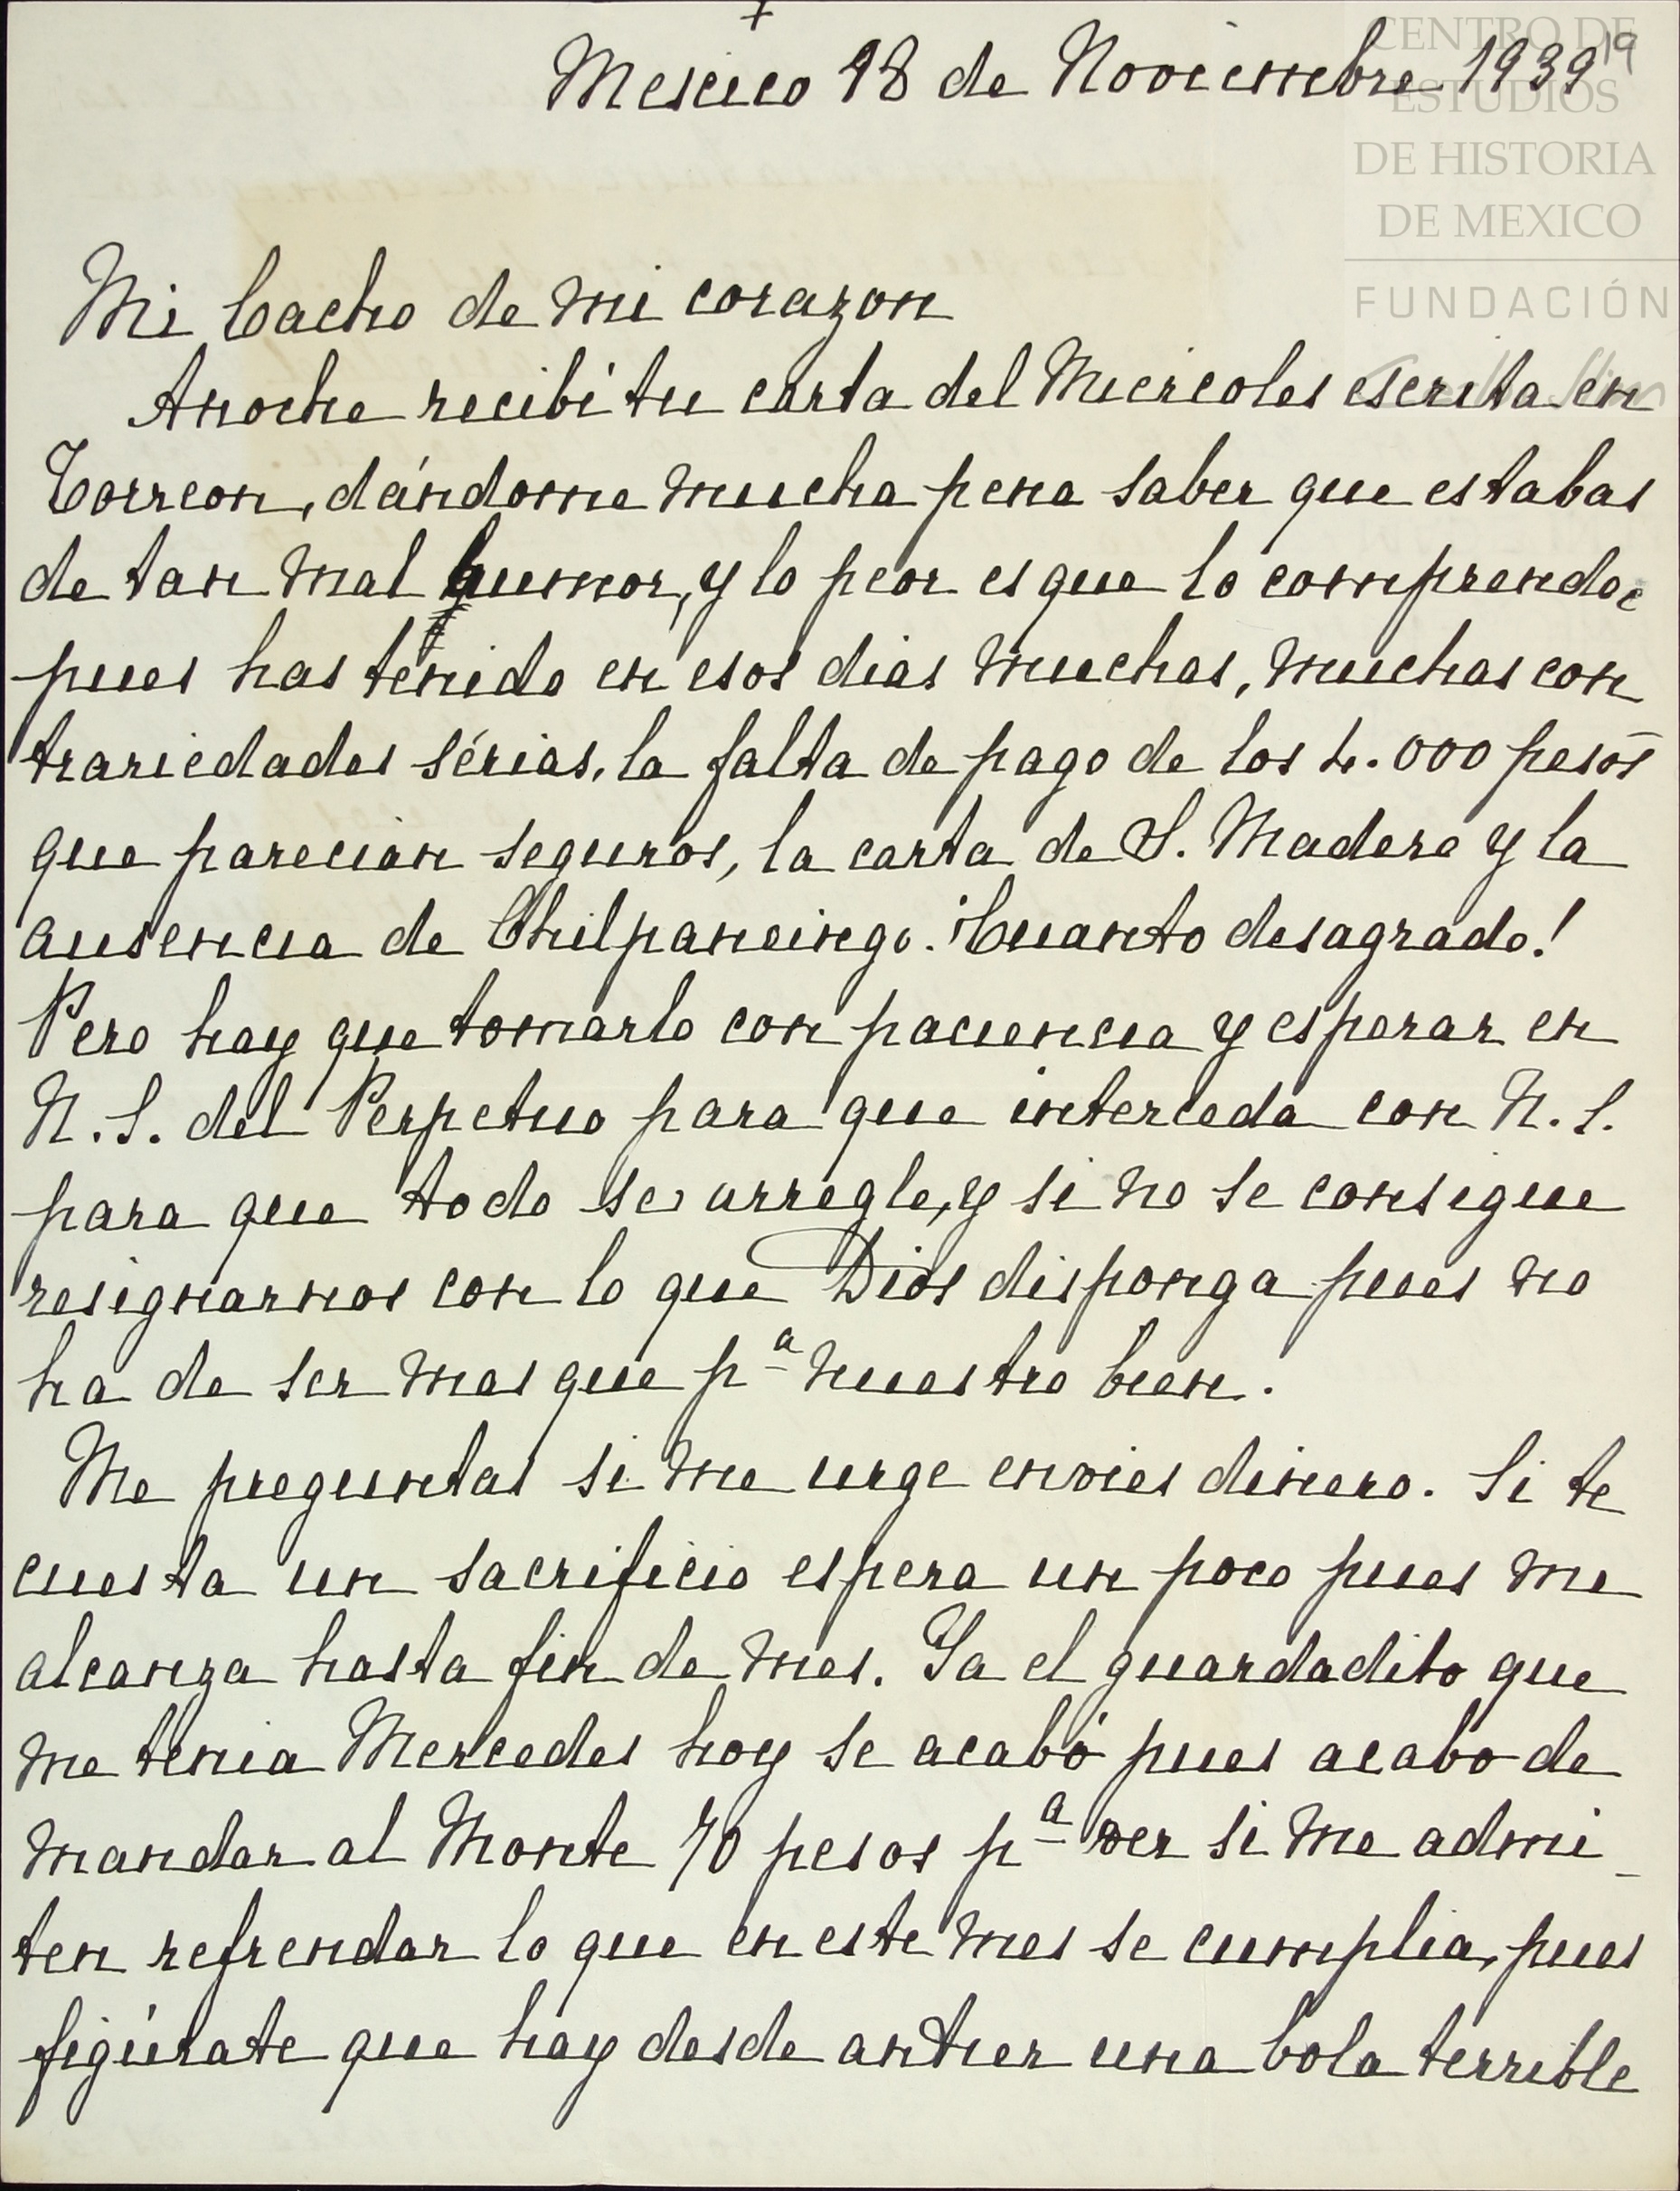 +
Mexico 18 de Noviembre 1939
19
CENTRO DE
ESTUDIOS
DE HISTORIA
DE MEXICO
FUNDACIÓN
Carlos Slim
Mi Cacho de mi corazon
Anoche recibí tu carta del Miercoles escrita en
Torreon, dándome mucha pena saber que estabas
de tan mal humor, y lo peor es que lo comprendo,
pues has tenido en esos dias muchas, muchas con
trariedades sérias, la falta de pago de los 4.000 pesos
que parecian seguros, la carta de S. Madero y la
ausencia de Chilpancingo. ¡Cuanto desagrado!
Pero hay que tomarlo con paciencia y esperar en
N. S. del Perpetuo para que interceda con N. S.
para que todo se arregle, y si no se consigue
resignarnos con lo que Dios disponga pues no
ha de ser mas que pª nuestro bien.
Me preguntas si me urge envies dinero. Si te
cuesta un sacrificio espera un poco pues me
alcanza hasta fin de mes. Ya el guardadito que
me tenia Mercedes hoy se acabó pues acabo de
mandar al Monte 70 pesos pª ver si me admi-
ten refrendar lo que en este mes se cumplia, pues
figúrate que hay desde antier una bola terrible